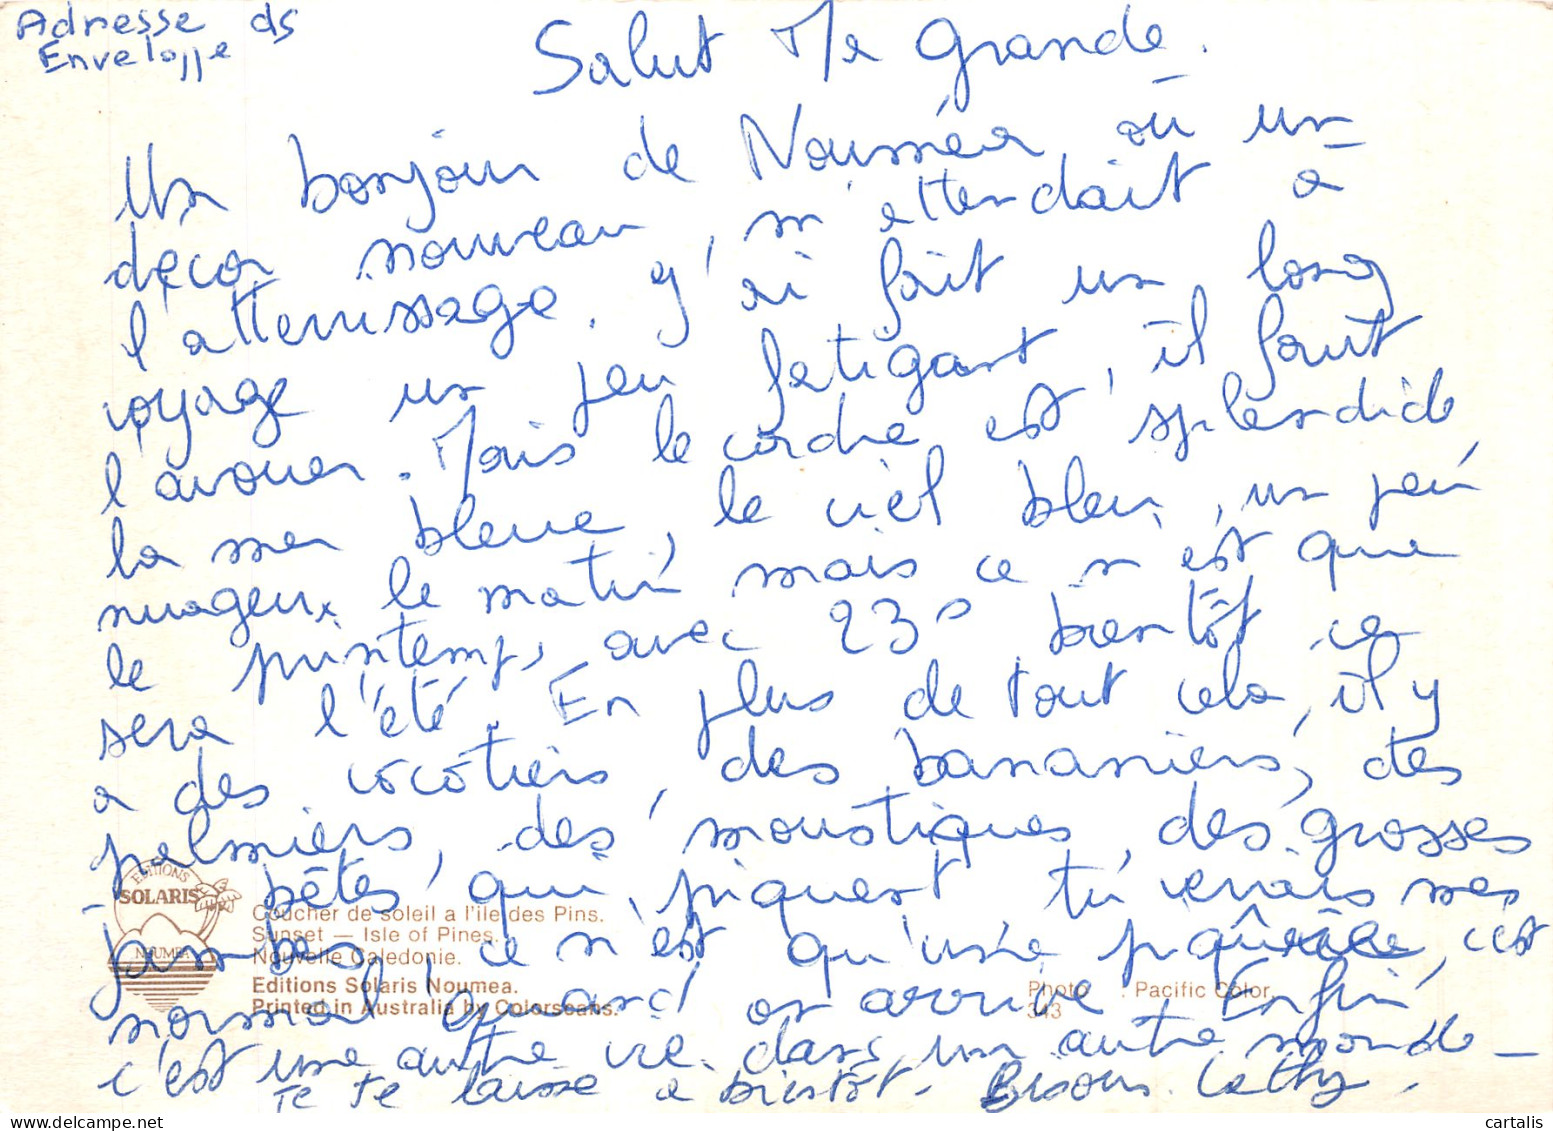 Adresse ds
Enveloppe
Salut Ma grande.
Un bonjour de Nouméa où un
décor nouveau, m'attendait à
l'atterrissage. J'ai fait un long
voyage un peu fatigant, il faut
l'avouer. Mais le cadre est splendide
la mer bleue, le ciel bleu, un peu
nuageux le matin mais ce n'est que
le printemps, avec 23° bientôt ce
sera l'été. En plus de tout cela, il y
a des cocotiers, des bananiers, des
palmiers, des moustiques, des grosses
bêtes qui piquent tu verrais mes
jambes! ce n'est qu'une piqûre, c'est
normal quand on arrive. Enfin
c'est une autre vie dans un autre monde_
Je te laisse a bientôt. Bisous. Cathy.
EDITIONS
SOLARIS
NOUMEA
Coucher de soleil a l'ile des Pins.
Sunset — Isle of Pines.
Nouvelle Caledonie.
Editions Solaris Noumea.
Printed in Australia by Colorscans.
Photo : Pacific Color.
343
cartalis